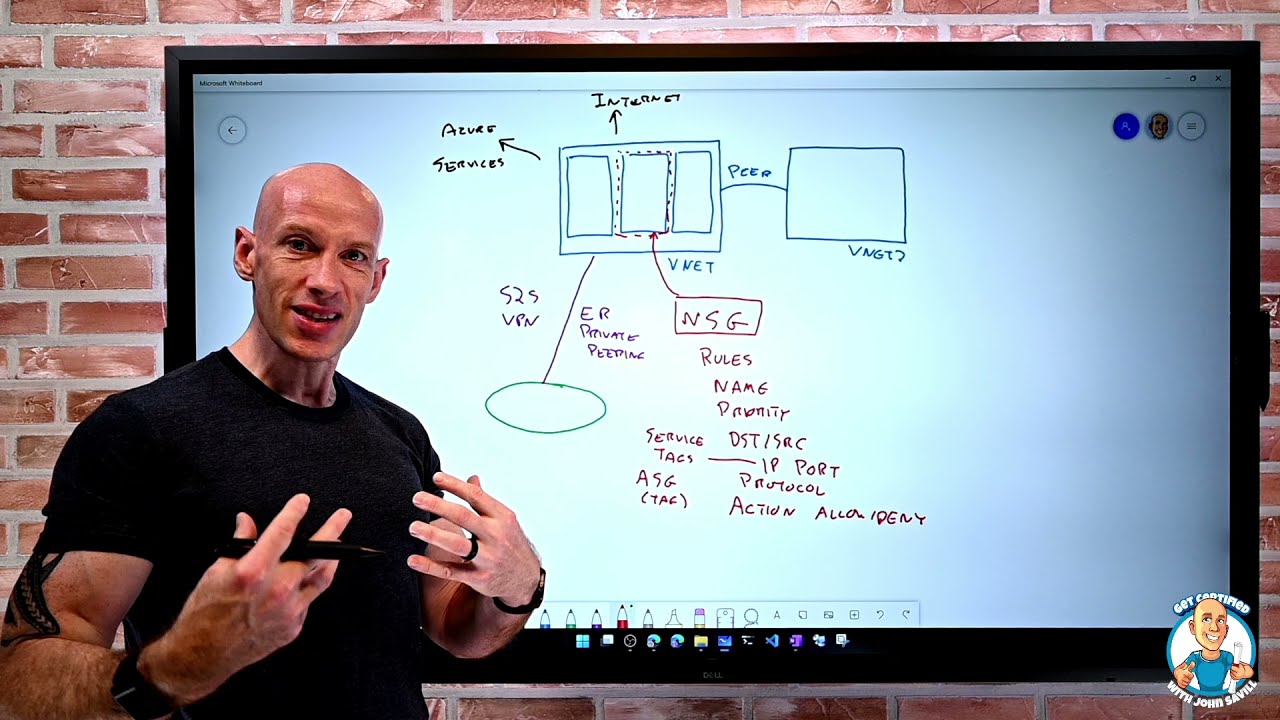 Microsoft Whiteboard
INTERNET
AZURE
SERVICES
PEER
VNET
VNET2
S2S
VPN
ER
PRIVATE
PEERING
NSG
RULES
NAME
PRIORITY
SERVICE
TAGS
ASG
(TAG)
DST/SRC
IP PORT
PROTOCOL
ACTION ALLOW/DENY
DELL
GET CERTIFIED
WITH JOHN SAVILL